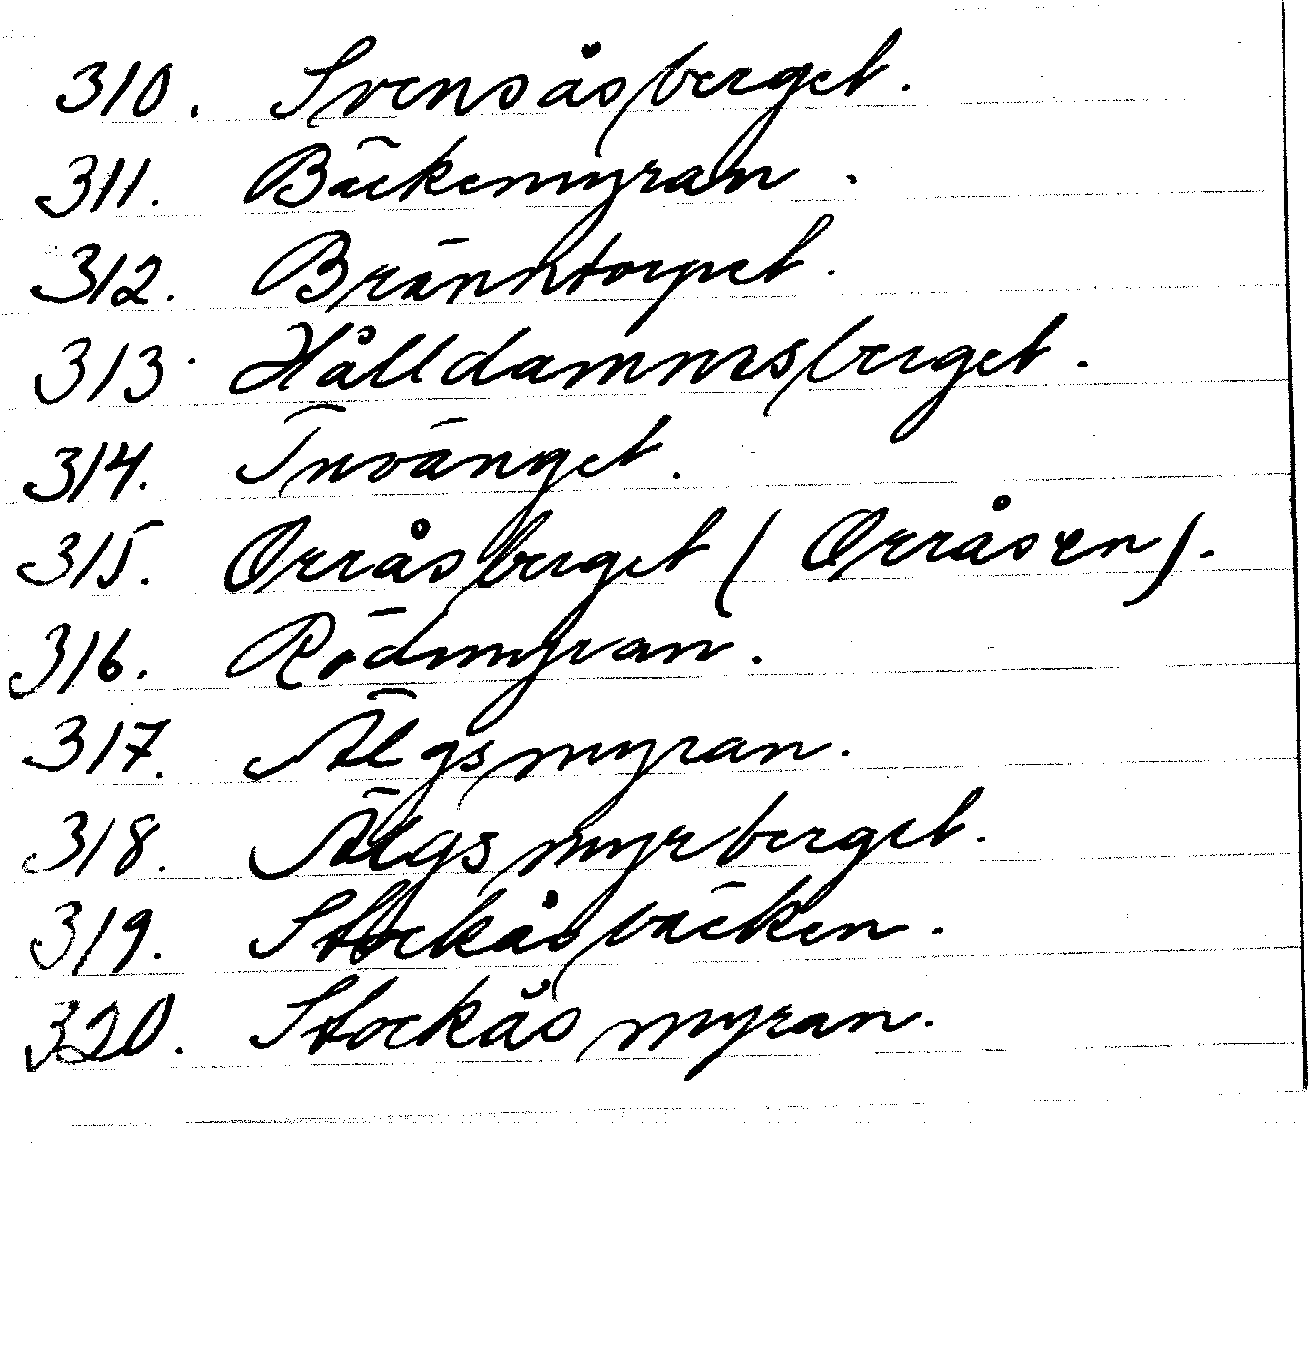 310. Svensåsberget.
311. Bäckenmyran.
312. Bränntorpet.
313. Hålldammsberget.
314. Invänget.
315. Orråsberget (Orråsen).
316. Rödmyran.
317. Älgsmyran.
318. Älgsmyrberget.
319. Stockåsbäcken.
320. Stockåsmyran.